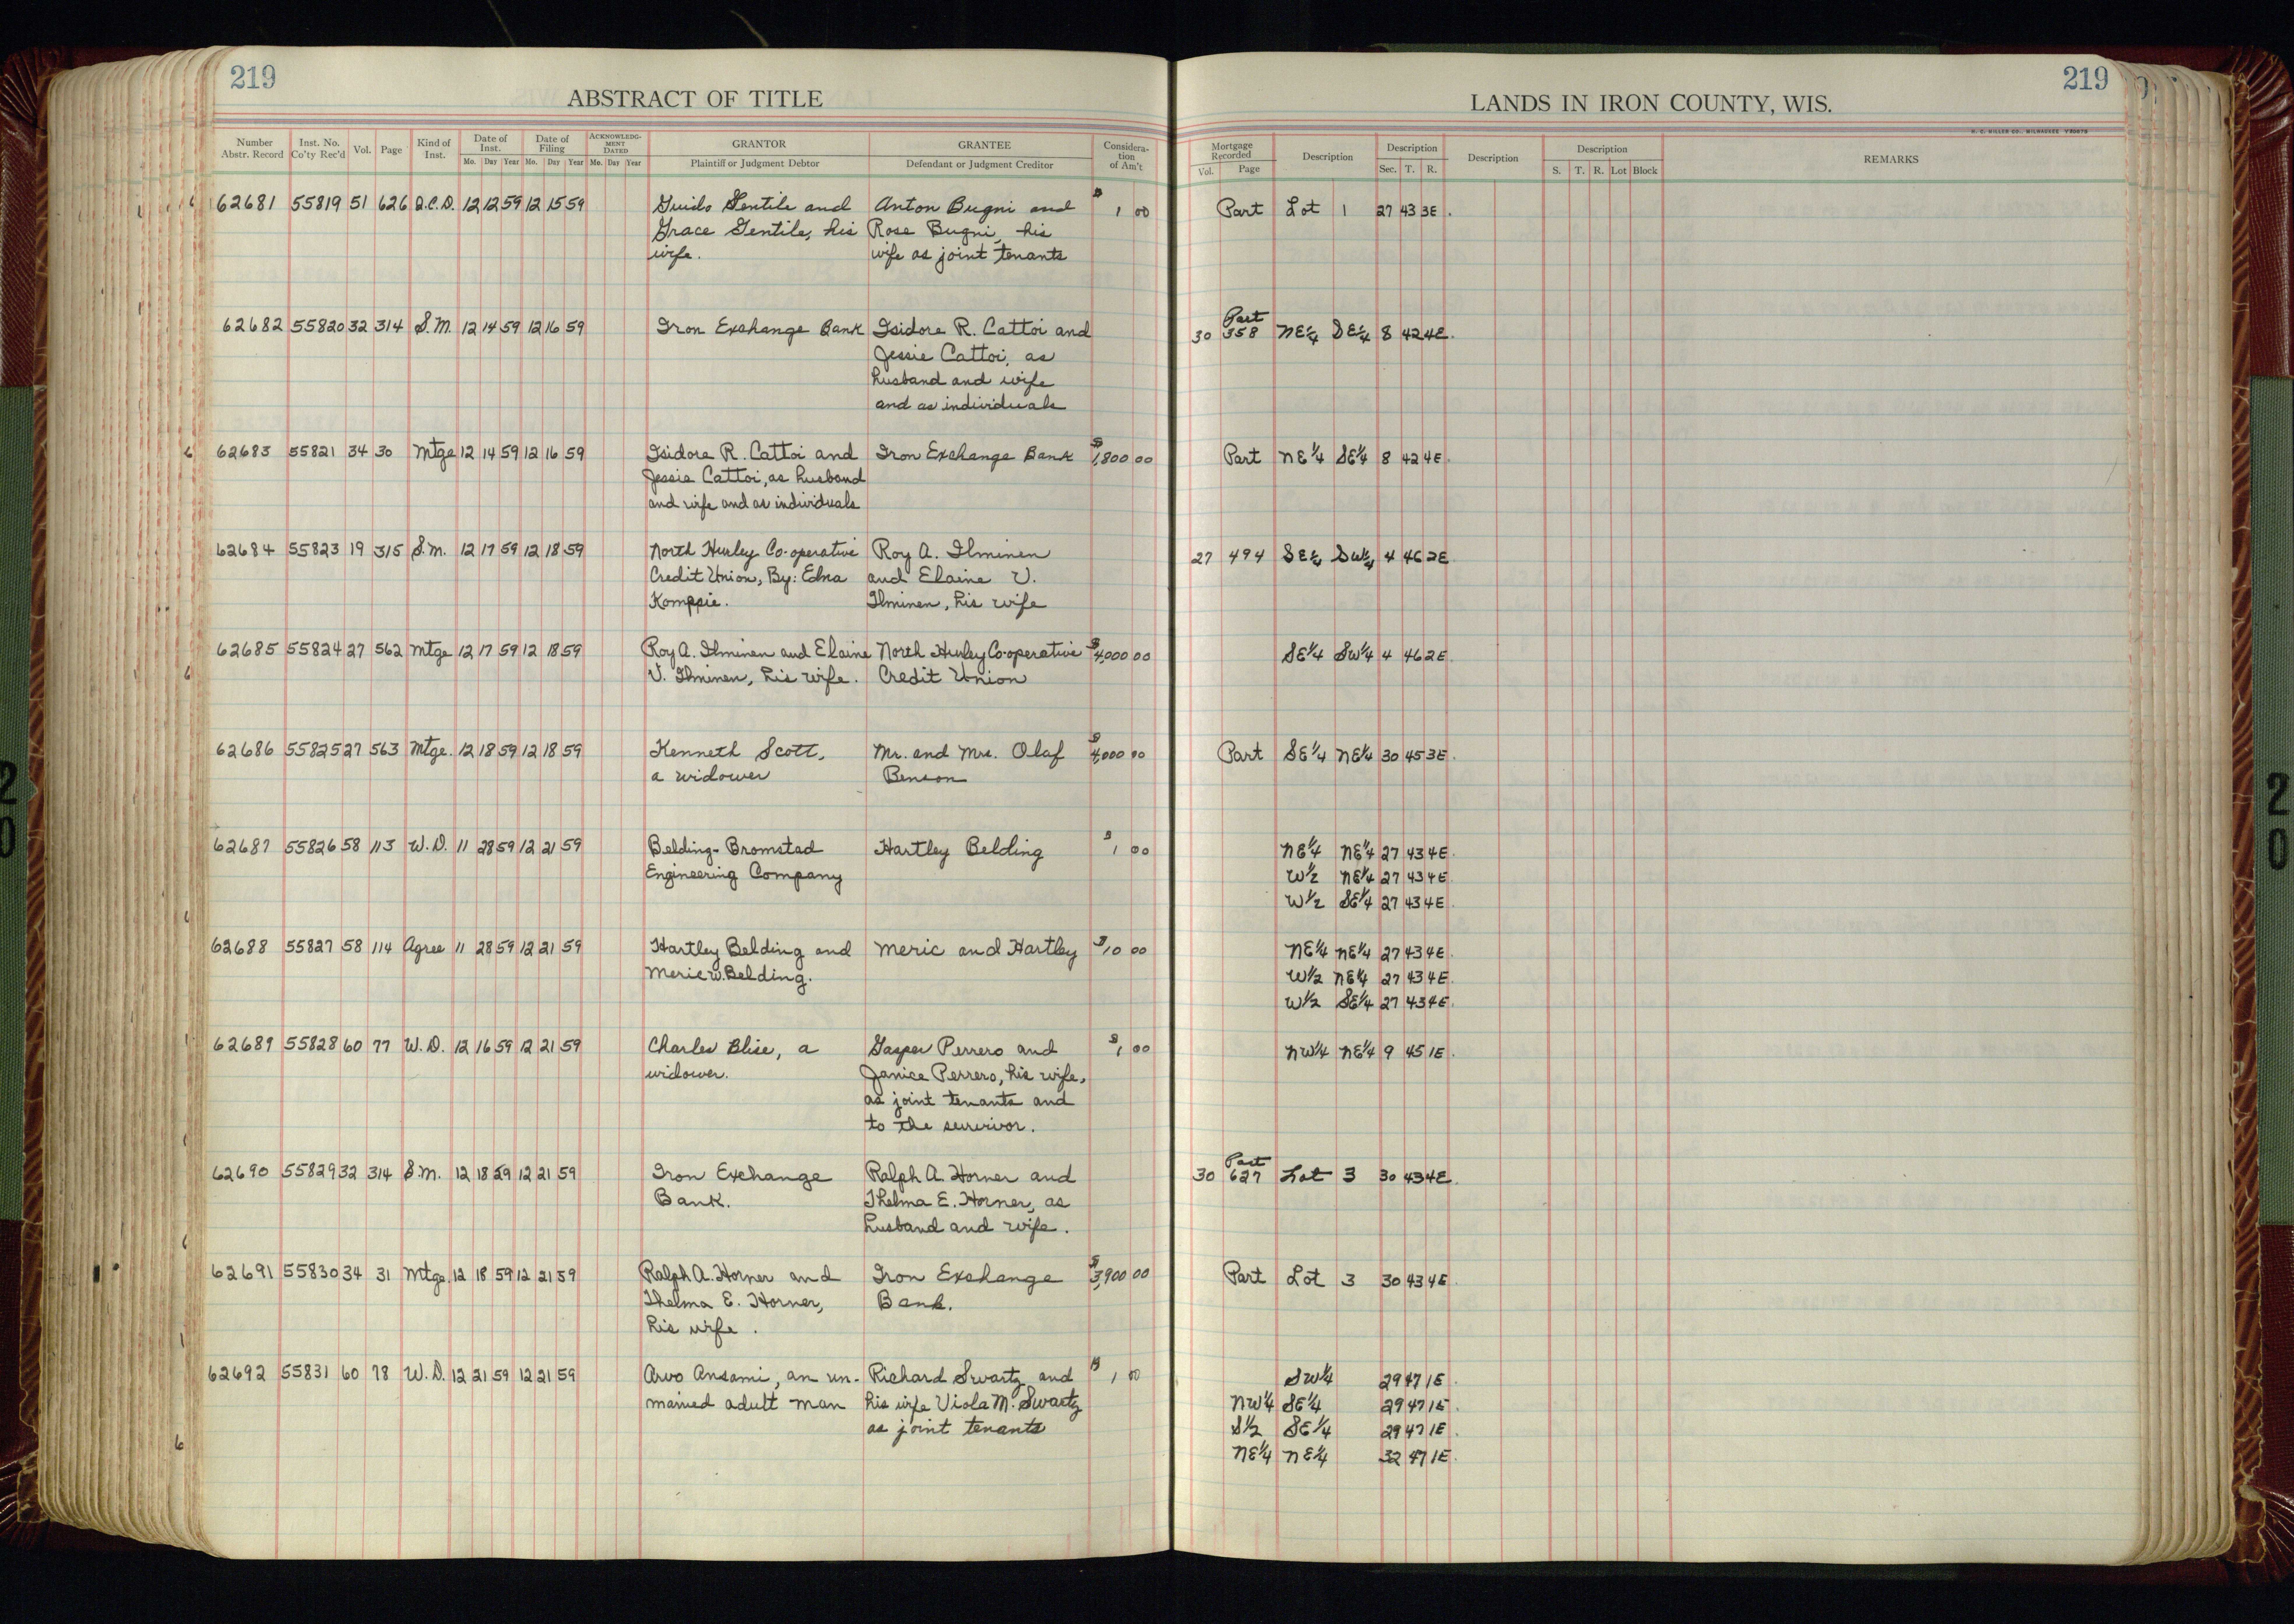 219
ABSTRACT OF TITLE
Number Abstr. Record Inst. No. Co'ty Rec'd Vol. Page Kind of Inst. Date of Inst. Mo. Day Year Date of Filing Mo. Day Year ACKNOWLEDGMENT DATED Mo. Day Year GRANTOR Plaintiff or Judgment Debtor GRANTEE Defendant or Judgment Creditor Consideration of Am't
219
LANDS IN IRON COUNTY, WIS.
H. C. MILLER CO., MILWAUKEE
Mortgage Recorded Vol. Page Description Description Sec. T. R. Description Description S. T. R. Lot Block REMARKS
62681 55819 51 626 Q.C.D. 12 12 59 12 15 59 Guido Gentile and Anton Bugni and $ 1 00 Part Lot 1 27 43 3E.
Grace Gentile, his Rose Bugni, his
wife. wife as joint tenants
Part
62682 55820 32 314 S.M. 12 14 59 12 16 59 Iron Exchange Bank Isidore R. Cattoi and 30 358 NE¼ SE¼ 8 42 4E.
Jessie Cattoi, as
husband and wife
and as individuals
62683 55821 34 30 Mtge 12 14 59 12 16 59 Isidore R. Cattoi and Iron Exchange Bank $1,800 00 Part NE¼ SE¼ 8 42 4E.
Jessie Cattoi, as husband
and wife and as individuals
62684 55823 19 315 S.M. 12 17 59 12 18 59 North Hurley Co-operative Roy A. Ilminen 27 494 SE¼ SW¼ 4 46 2E
Credit Union, By: Edna and Elaine V.
Komppie. Ilminen, his wife
62685 55824 27 562 Mtge 12 17 59 12 18 59 Roy A. Ilminen and Elaine North Hurley Co-operative $4,000 00 SE¼ SW¼ 4 46 2E
V. Ilminen, his wife. Credit Union
62686 55825 27 563 Mtge. 12 18 59 12 18 59 Kenneth Scott, Mr. and Mrs. Olaf $4,000 00 Part SE¼ NE¼ 30 45 3E.
a widower Benson
62687 55826 58 113 W.D. 11 28 59 12 21 59 Belding-Bromstad Hartley Belding $ 1 00 NE¼ NE¼ 27 43 4E.
Engineering Company W½ NE¼ 27 43 4E
W½ SE¼ 27 43 4E.
62688 55827 58 114 Agree 11 28 59 12 21 59 Hartley Belding and Meric and Hartley $10 00 NE¼ NE¼ 27 43 4E.
Meric W. Belding. W½ NE¼ 27 43 4E
W½ SE¼ 27 43 4E.
62689 55828 60 77 W.D. 12 16 59 12 21 59 Charles Blise, a Gasper Perrero and $1 00 NW¼ NE¼ 9 45 1E.
widower. Janice Perrero, his wife,
as joint tenants and
to the survivor.
Part
62690 55829 32 314 S.M. 12 18 59 12 21 59 Iron Exchange Ralph A. Horner and 30 627 Lot 3 30 43 4E.
Bank. Thelma E. Horner, as
husband and wife.
62691 55830 34 31 Mtge. 12 18 59 12 21 59 Ralph A. Horner and Iron Exchange $3,900 00 Part Lot 3 30 43 4E
Thelma E. Horner, Bank.
his wife.
62692 55831 60 78 W.D. 12 21 59 12 21 59 Arvo Ansami, an un- Richard Swartz and $ 1 00 SW¼ 29 47 1E.
married adult man his wife Viola M. Swartz NW¼ SE¼ 29 47 1E.
as joint tenants S½ SE¼ 29 47 1E.
NE¼ NE¼ 32 47 1E.
20
20